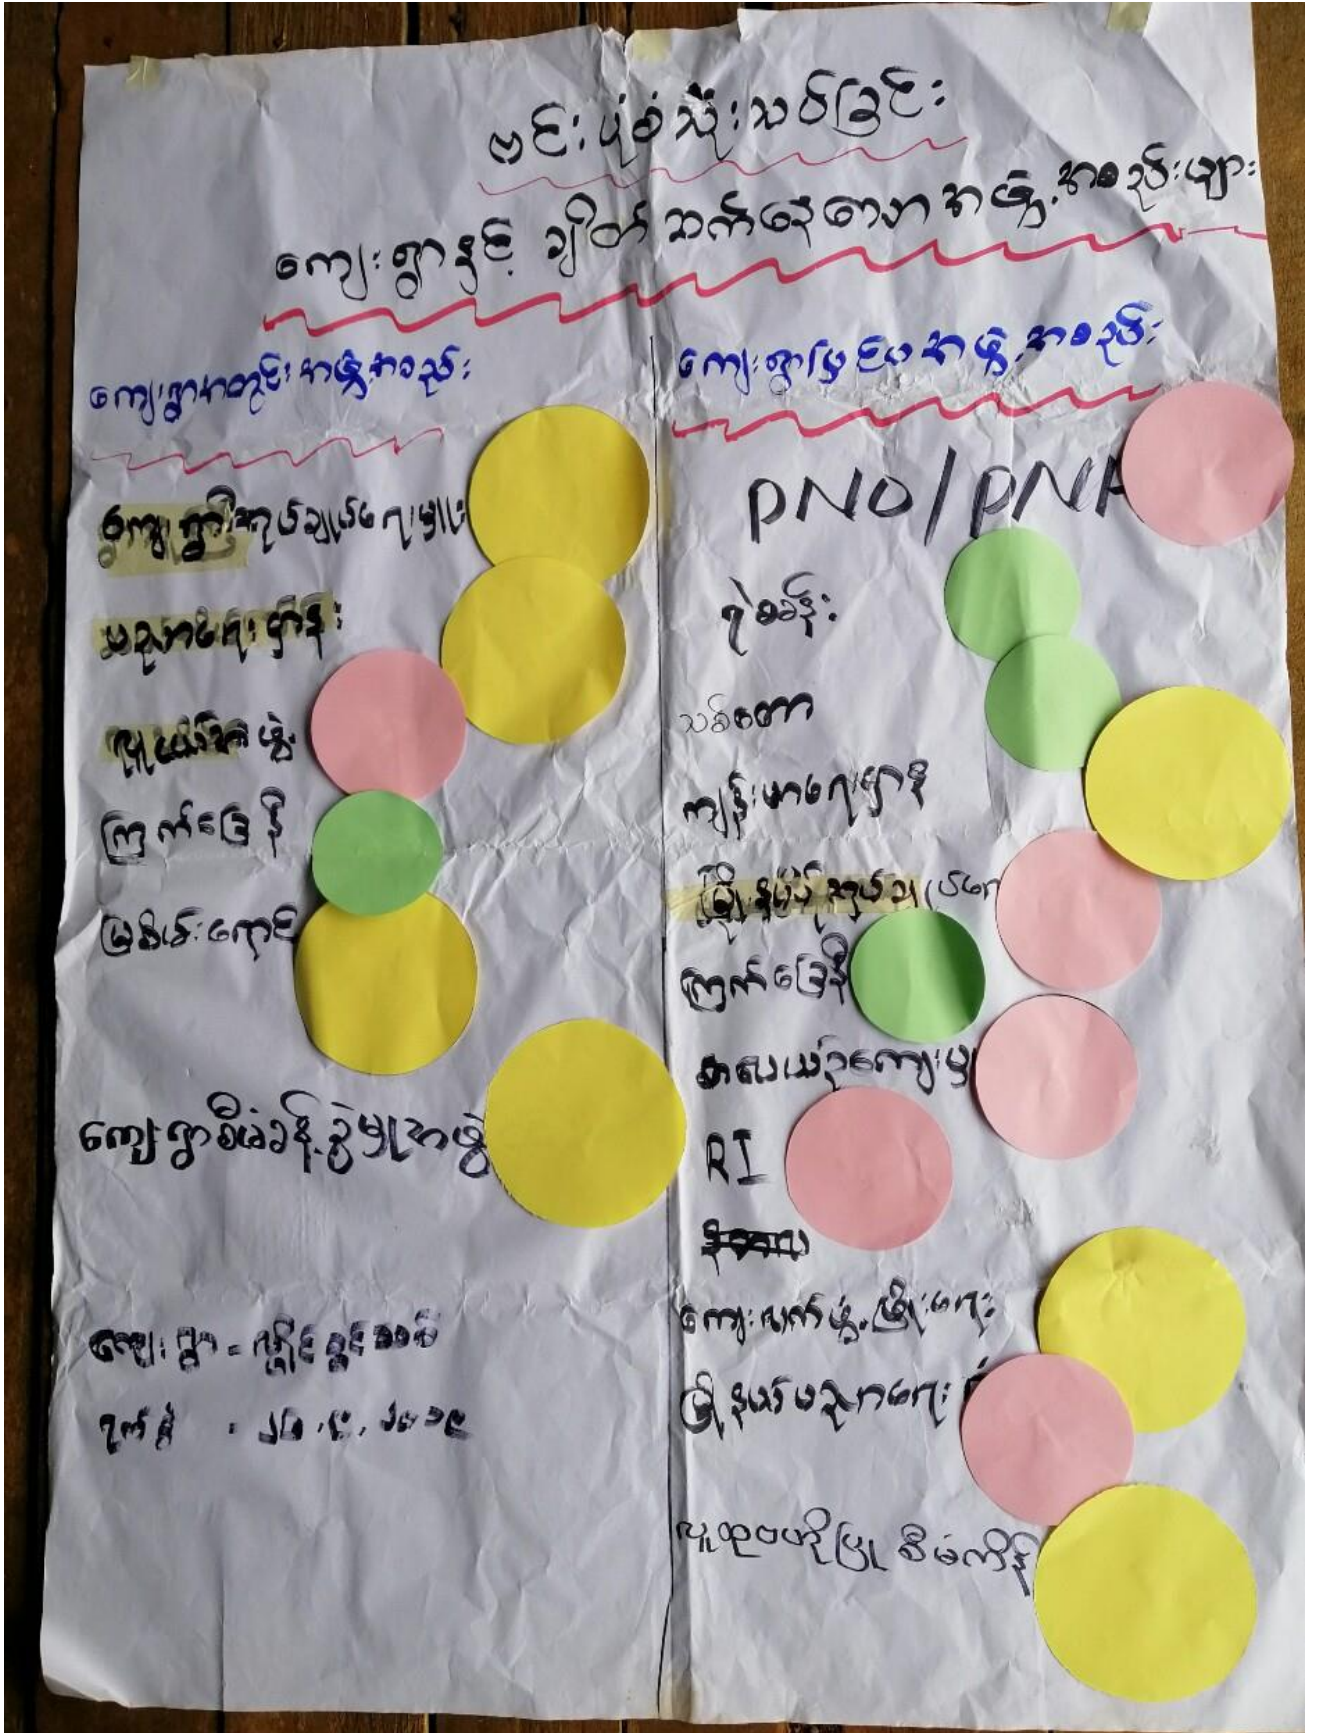 ဗင်းပုံစံသုံးသပ်ခြင်း
ကျေးရွာနှင့် ချိတ်ဆက်နေသောအဖွဲ့အစည်းများ
ကျေးရွာတွင်းအဖွဲ့အစည်း
ကျေးရွာအုပ်ချုပ်ရေးမှူး
ပညာရေးဌာန
လူငယ်အဖွဲ့
ကြက်ခြေနီ
မြစိမ်းရောင်
ကျေးရွာစီမံခန့်ခွဲမှုအဖွဲ့
ကျေးရွာ =
ရက်စွဲ
ကျေးရွာပြင်ပအဖွဲ့အစည်း
PNO/PNA
ရဲစခန်း
သစ်တော
ကျန်းမာရေးဌာန
မြို့နယ်အုပ်ချုပ်ရေး
ကြက်ခြေနီ
RI
ကျေးလက်ဖွံ့ဖြိုးရေး
မြို့နယ်ပညာရေး
လူထုဗဟိုပြုစီမံကိန်း